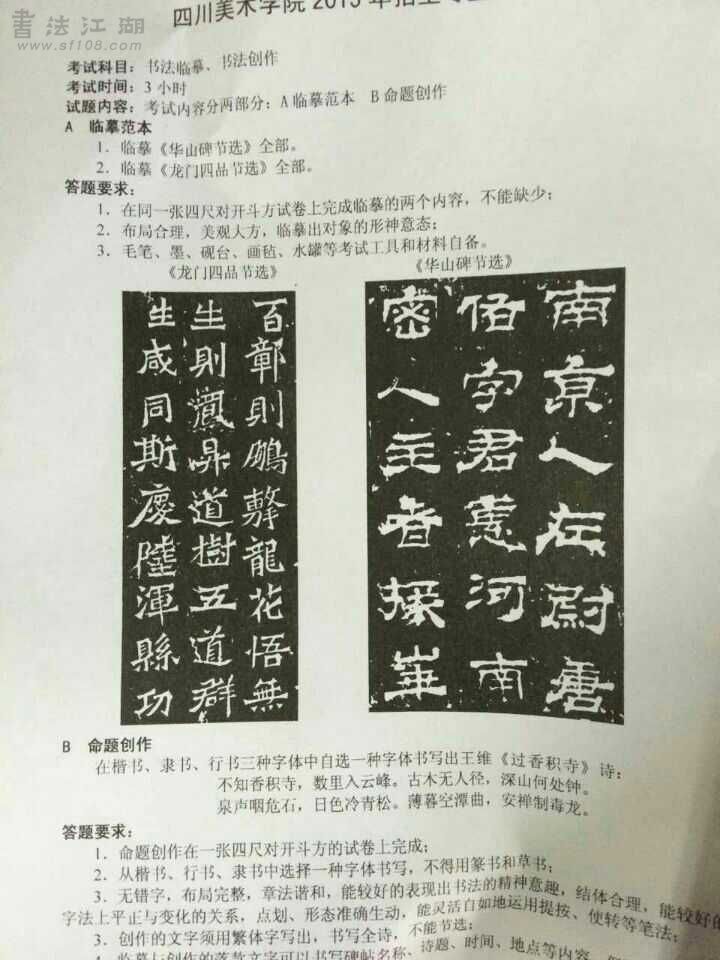 書法江湖
www.sf108.com
四川美术学院 2015 年招生
考试科目：书法临摹、书法创作
考试时间：3 小时
试题内容：考试内容分两部分：A 临摹范本 B 命题创作
A 临摹范本
1．临摹《华山碑节选》全部。
2．临摹《龙门四品节选》全部。
答题要求：
1．在同一张四尺对开斗方试卷上完成临摹的两个内容，不能缺少；
2．布局合理，美观大方，临摹出对象的形神意态；
3．毛笔、墨、砚台、画毡、水罐等考试工具和材料自备。
《龙门四品节选》
《华山碑节选》
百鄣則鵬擊龍花悟無
生則鳳昇道樹五道群
生咸同斯慶陸渾縣功
南京人左尉唐
佑字君惠河南
密人主者掾華
B 命题创作
在楷书、隶书、行书三种字体中自选一种字体书写出王维《过香积寺》诗：
不知香积寺，数里入云峰。古木无人径，深山何处钟。
泉声咽危石，日色冷青松。薄暮空潭曲，安禅制毒龙。
答题要求：
1．命题创作在一张四尺对开斗方的试卷上完成；
2．从楷书、行书、隶书中选择一种字体书写，不得用篆书和草书；
3．无错字，布局完整，章法谐和，能较好的表现出书法的精神意趣，结体合理，能较好的
字法上平正与变化的关系，点划、形态准确生动，能灵活自如地运用提按、使转等笔法；
3．创作的文字须用繁体字写出，书写全诗，不能节选；
4．临摹与创作的落款文字可以书写碑帖名称、诗题、时间、地点等内容，